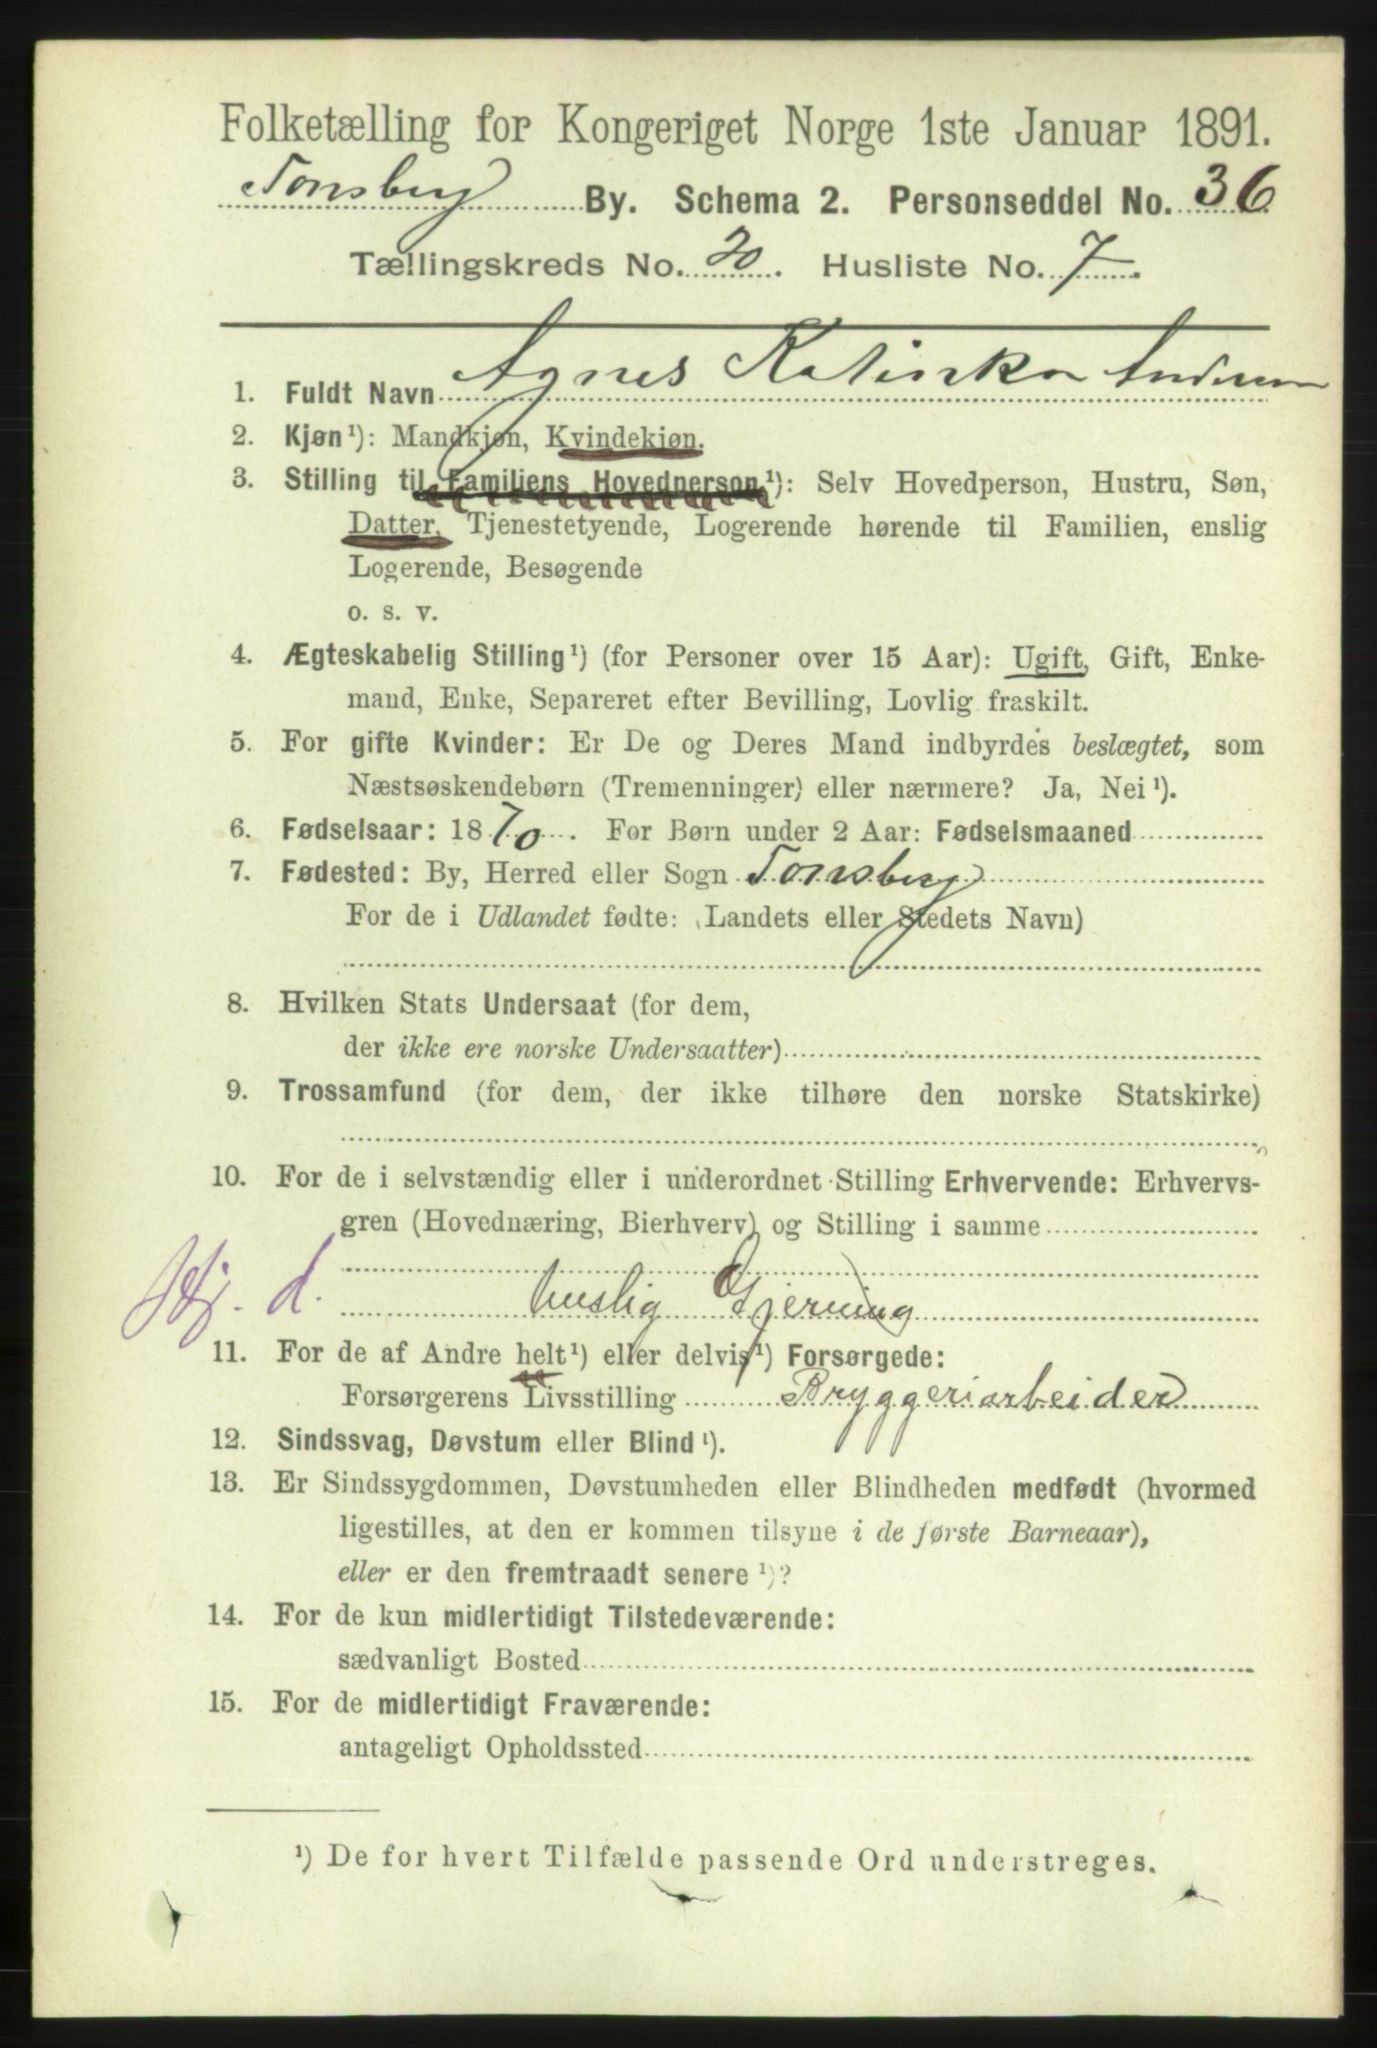 Folketælling for Kongeriget Norge 1ste Januar 1891.
Tønsberg By. Schema 2. Personseddel No. 36
Tællingskreds No. 20. Husliste No. 7.
1. Fuldt Navn Agnes Katinka Andersen
2. Kjøn¹): Mandkjøn, Kvindekjøn.
3. Stilling til Familiens Hovedperson¹): Selv Hovedperson, Hustru, Søn,
Datter, Tjenestetyende, Logerende hørende til Familien, enslig
Logerende, Besøgende
o. s. v.
4. Ægteskabelig Stilling¹) (for Personer over 15 Aar): Ugift, Gift, Enke-
mand, Enke, Separeret efter Bevilling, Lovlig fraskilt.
5. For gifte Kvinder: Er De og Deres Mand indbyrdes beslægtet, som
Næstsøskendebørn (Tremenninger) eller nærmere? Ja, Nei¹).
6. Fødselsaar: 1870. For Børn under 2 Aar: Fødselsmaaned
7. Fødested: By, Herred eller Sogn Tønsberg
For de i Udlandet fødte: (Landets eller Stedets Navn)
8. Hvilken Stats Undersaat (for dem,
der ikke ere norske Undersaatter)
9. Trossamfund (for dem, der ikke tilhøre den norske Statskirke)
10. For de i selvstændig eller i underordnet Stilling Erhvervende: Erhvervs-
gren (Hovednæring, Bierhverv) og Stilling i samme
d. huslig Gjerning
11. For de af Andre helt¹) eller delvis¹) Forsørgede:
Forsørgerens Livsstilling Bryggeriarbeider
12. Sindssvag, Døvstum eller Blind¹).
13. Er Sindssygdommen, Døvstumheden eller Blindheden medfødt (hvormed
ligestilles, at den er kommen tilsyne i de første Barneaar),
eller er den fremtraadt senere¹)?
14. For de kun midlertidigt Tilstedeværende:
sædvanligt Bosted
15. For de midlertidigt Fraværende:
antageligt Opholdssted
¹) De for hvert Tilfælde passende Ord understreges.